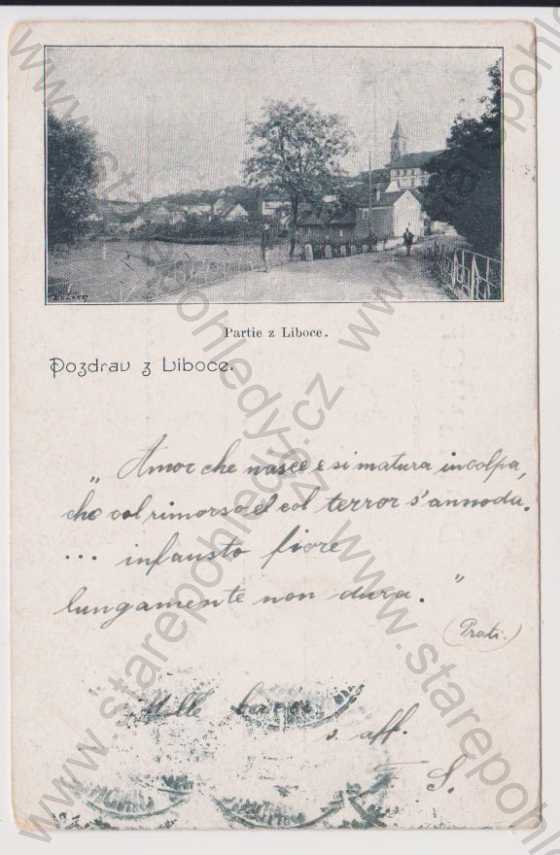 Partie z Liboce.
Pozdrav z Liboce.
„Amor che nasce e si matura in colpa,
che col rimorso e col terror s'annoda.
... infausto fiore
lungamente non dura."
(Prati.)
Mille baci
s. aff.
S.
www.starepohledy.cz